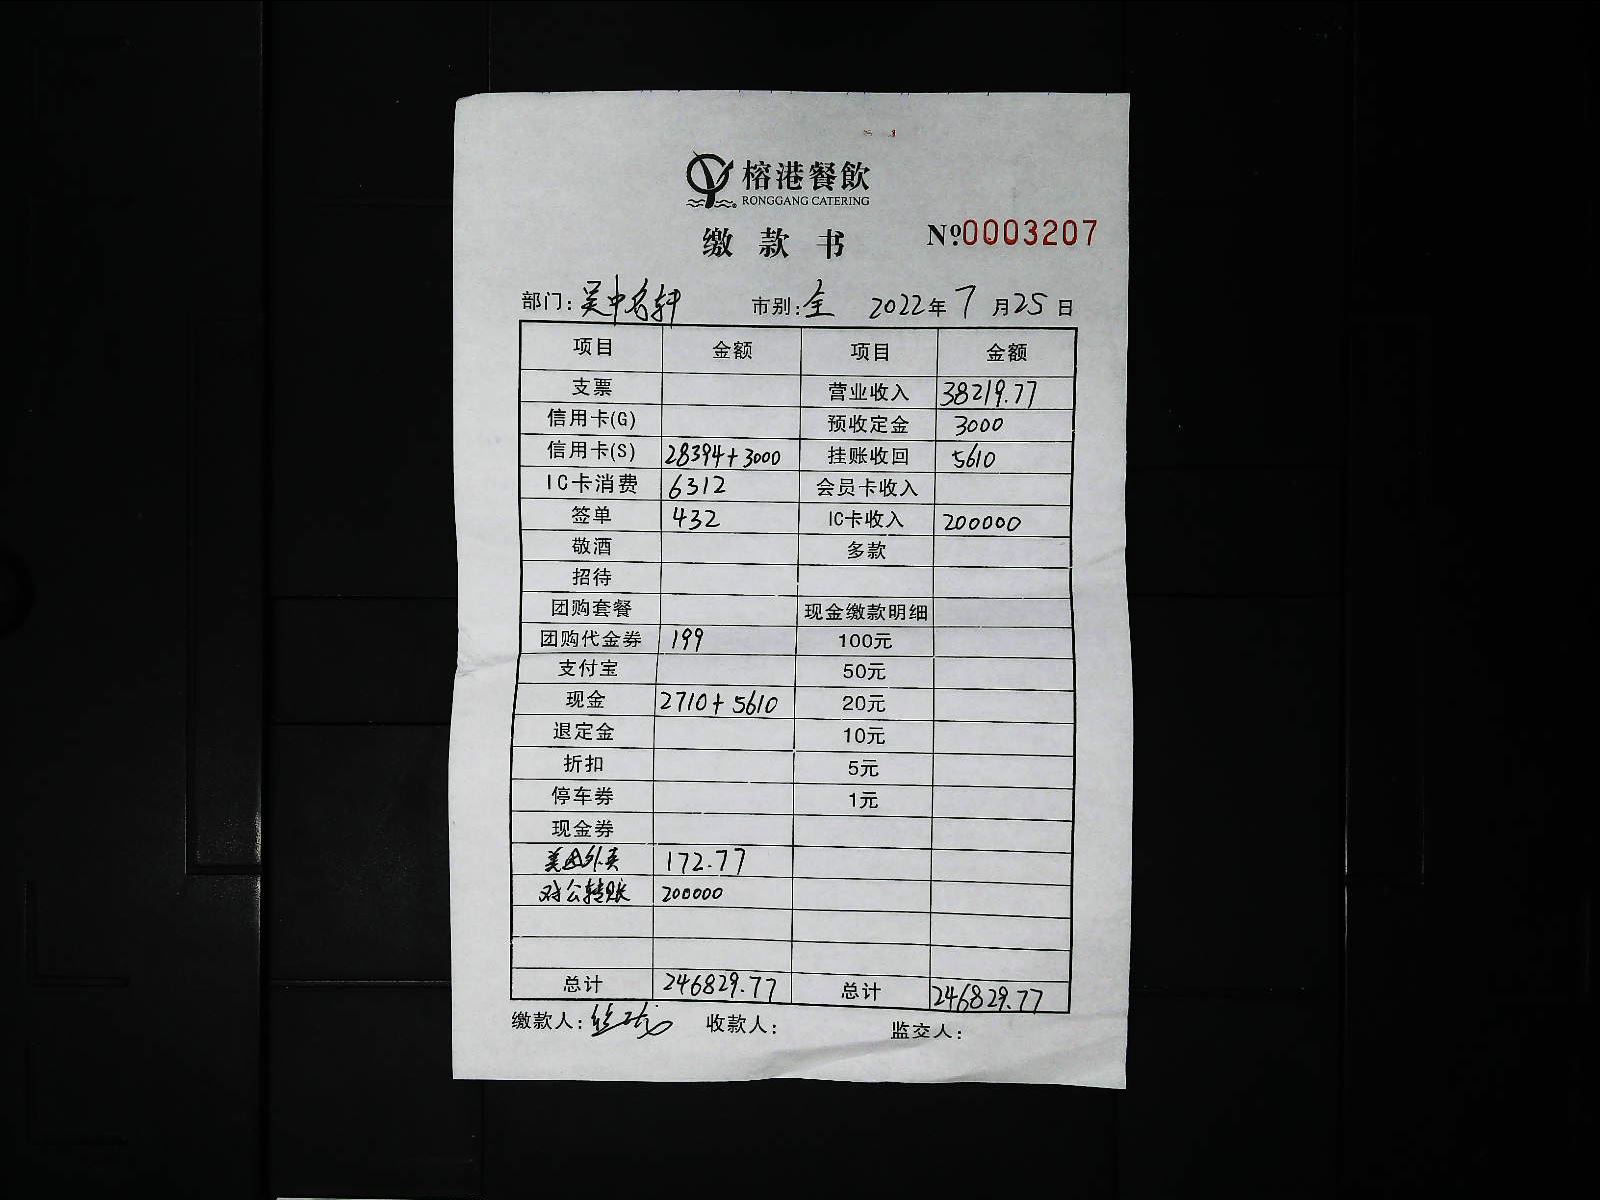 榕港餐飲
RONGGANG CATERING
缴款书
No0003207
部门:吴中名轩 市别:全 2022年7月25日
项目 金额 项目 金额
支票 营业收入 38219.77
信用卡(G) 预收定金 3000
信用卡(S) 28394+3000 挂账收回 5610
IC卡消费 6312 会员卡收入
签单 432 IC卡收入 200000
敬酒 多款
招待
团购套餐 现金缴款明细
团购代金券 199 100元
支付宝 50元
现金 2710+5610 20元
退定金 10元
折扣 5元
停车券 1元
现金券
美团外卖 172.77
对公转账 200000
总计 246829.77 总计 246829.77
缴款人: 收款人: 监交人: